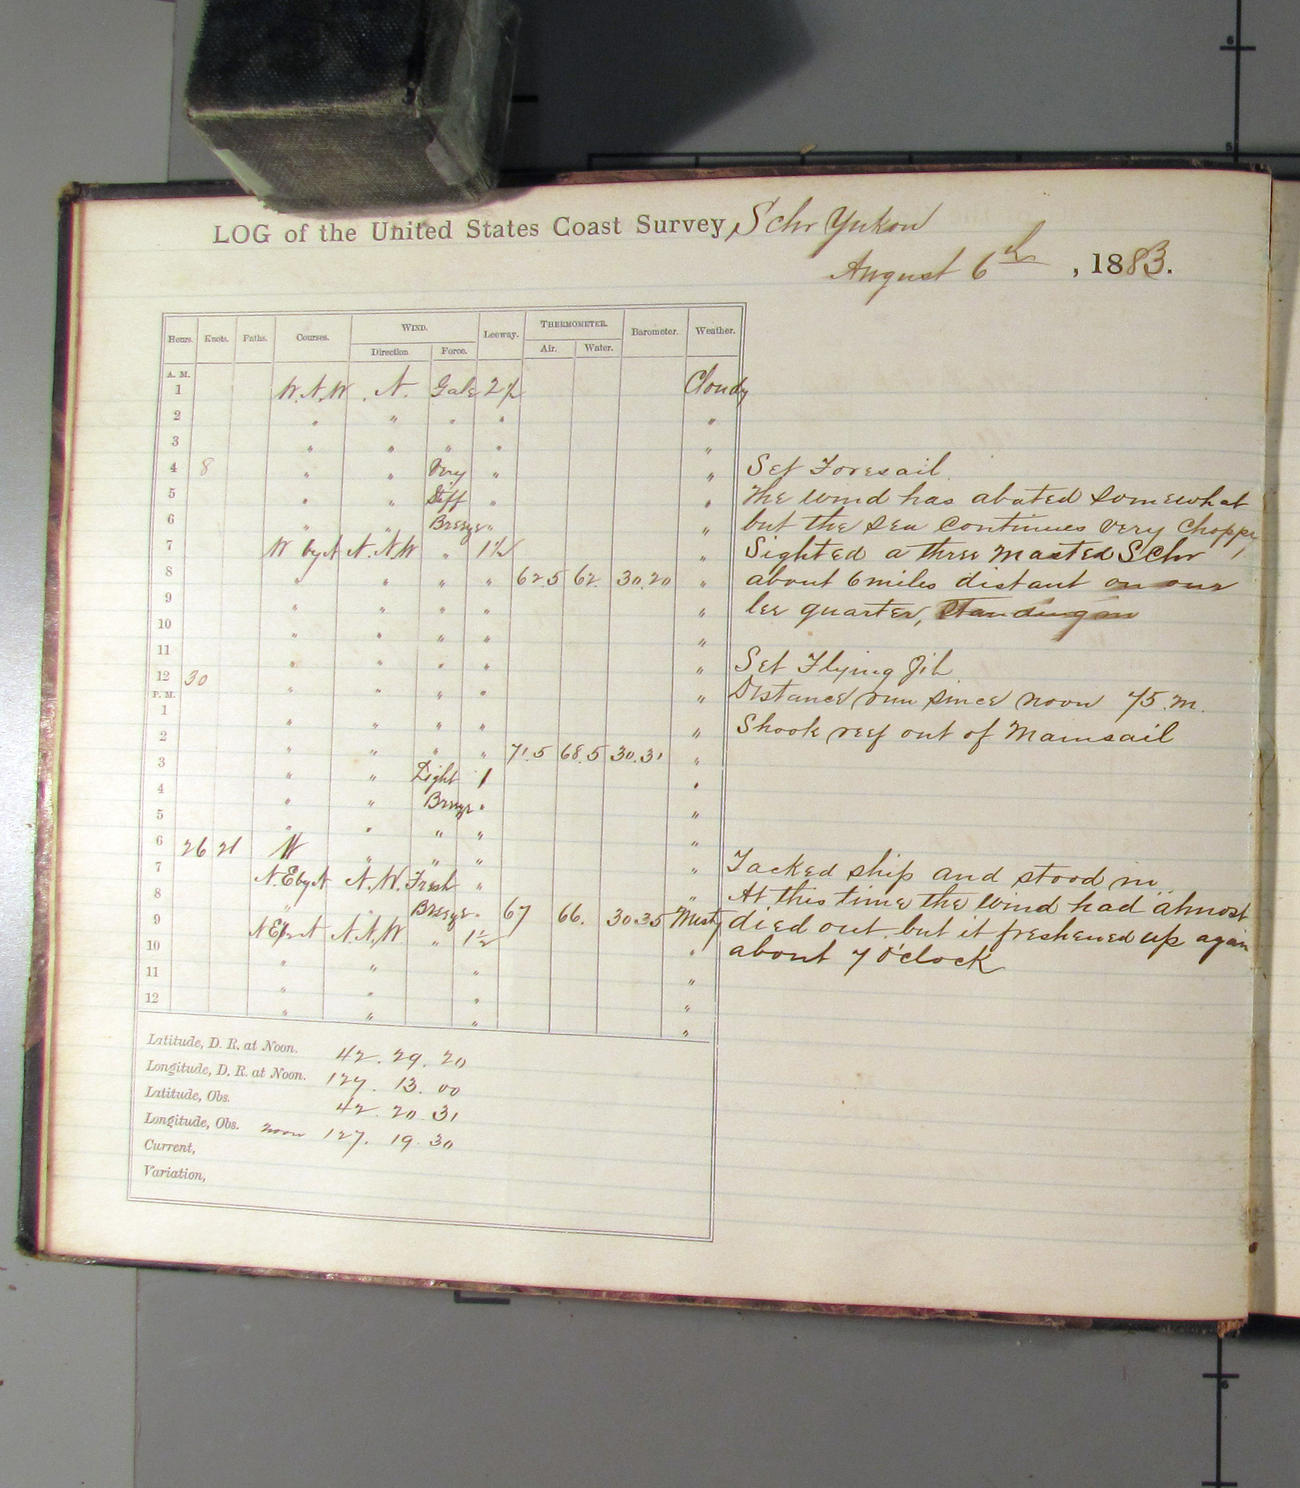 LOG of the United States Coast Survey, Schr Yukon
August 6th, 1883.
Hours. Knots. Faths. Courses. WIND. Direction. Force. Leeway. THERMOMETER. Air. Water. Barometer. Weather.
A. M.
1 W.N.W. N. Gale 2½ Cloudy
2 " " " " "
3 " " " " "
4 8 " " Very " " Set Foresail
5 " " Stiff " " The wind has abated somewhat
6 " " Breeze " " but the sea continues very choppy,
7 W by N N.NW " 1½ " Sighted a three masted Schr
8 " " " " 62.5 62. 30.20 " about 6 miles distant on our
9 " " " " " lee quarter, Standing in
10 " " " " "
11 " " " " " Set Flying Jib
12 30 " " " " " Distance run since noon 75.m.
P. M.
1 " " " " " Shook reef out of Mainsail
2 " " " " 71.5 68.5 30.31 "
3 " " Light 1 "
4 " " Breeze " "
5 " " " " "
6 26 21 W " " " " Tacked ship and stood in
7 N.E by N N.W. Fresh " " At this time the wind had almost
8 " " Breeze " 67 66. 30.35 Misty died out but it freshened up again
9 NE by N N.N.W " 1½ " about 7 o'clock
10 " " " "
11 " " " "
12 " " " "
Latitude, D. R. at Noon. 42. 29. 20
Longitude, D. R. at Noon. 127. 13. 00
Latitude, Obs. 42. 20. 31
Longitude, Obs. noon 127. 19. 30
Current,
Variation,
6
5
6